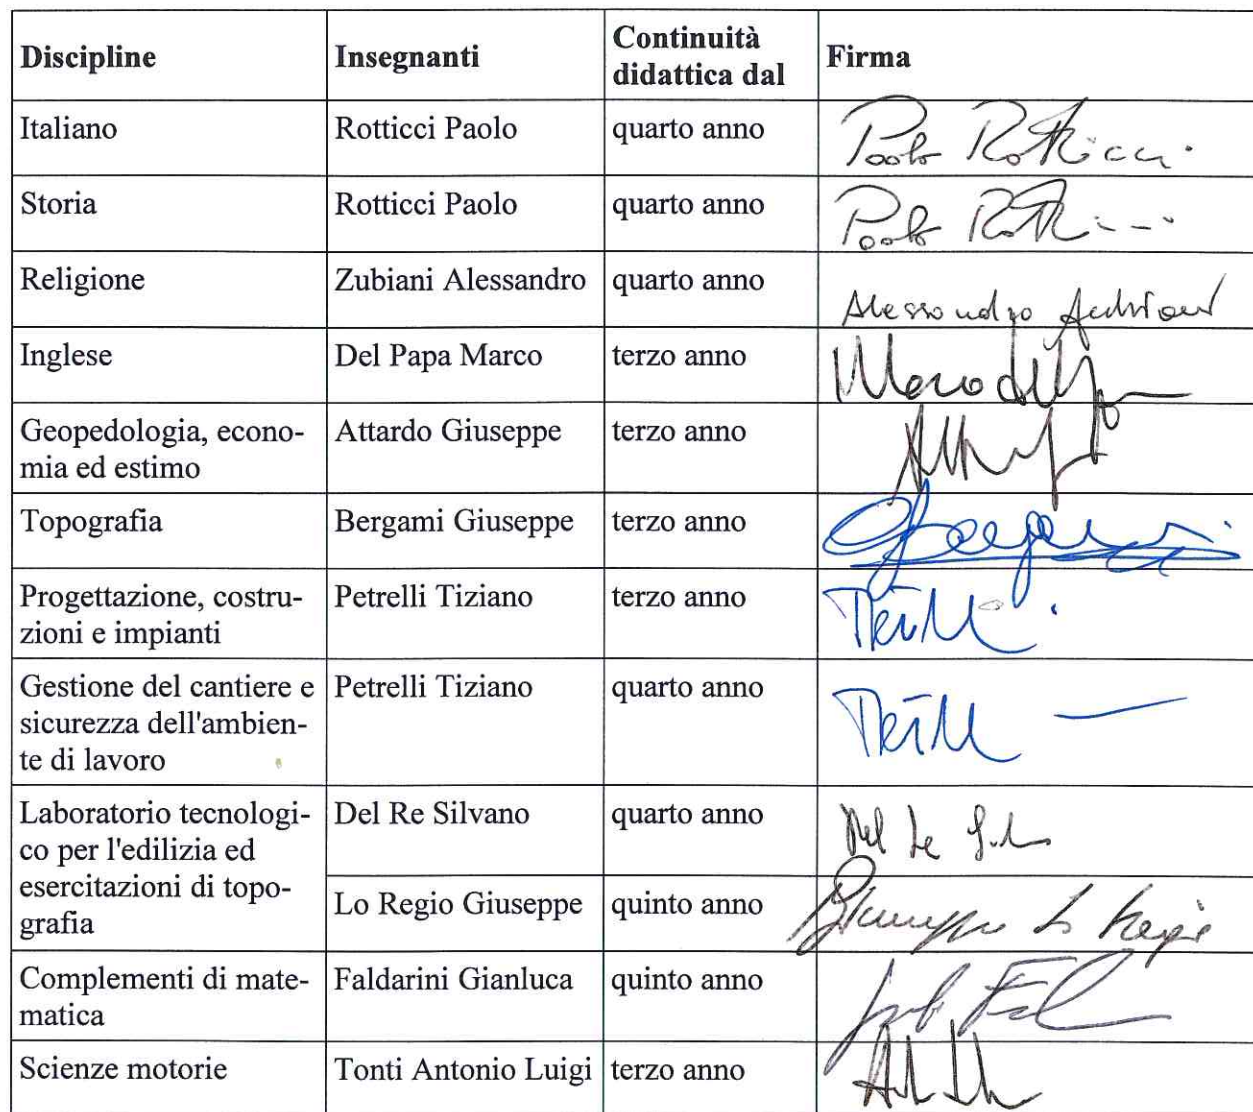 Discipline Insegnanti Continuità didattica dal Firma
Italiano Rotticci Paolo quarto anno Paolo Rotticci
Storia Rotticci Paolo quarto anno Paolo
Religione Zubiani Alessandro quarto anno Alessandro
Inglese Del Papa Marco terzo anno Marco
Geopedologia, econo-
mia ed estimo Attardo Giuseppe terzo anno
Topografia Bergami Giuseppe terzo anno
Progettazione, costru-
zioni e impianti Petrelli Tiziano terzo anno
Gestione del cantiere e
sicurezza dell'ambien-
te di lavoro Petrelli Tiziano quarto anno
Laboratorio tecnologi-
co per l'edilizia ed
esercitazioni di topo-
grafia
Del Re Silvano quarto anno Del Re
Lo Regio Giuseppe quinto anno Giuseppe Lo Regio
Complementi di mate-
matica Faldarini Gianluca quinto anno
Scienze motorie Tonti Antonio Luigi terzo anno